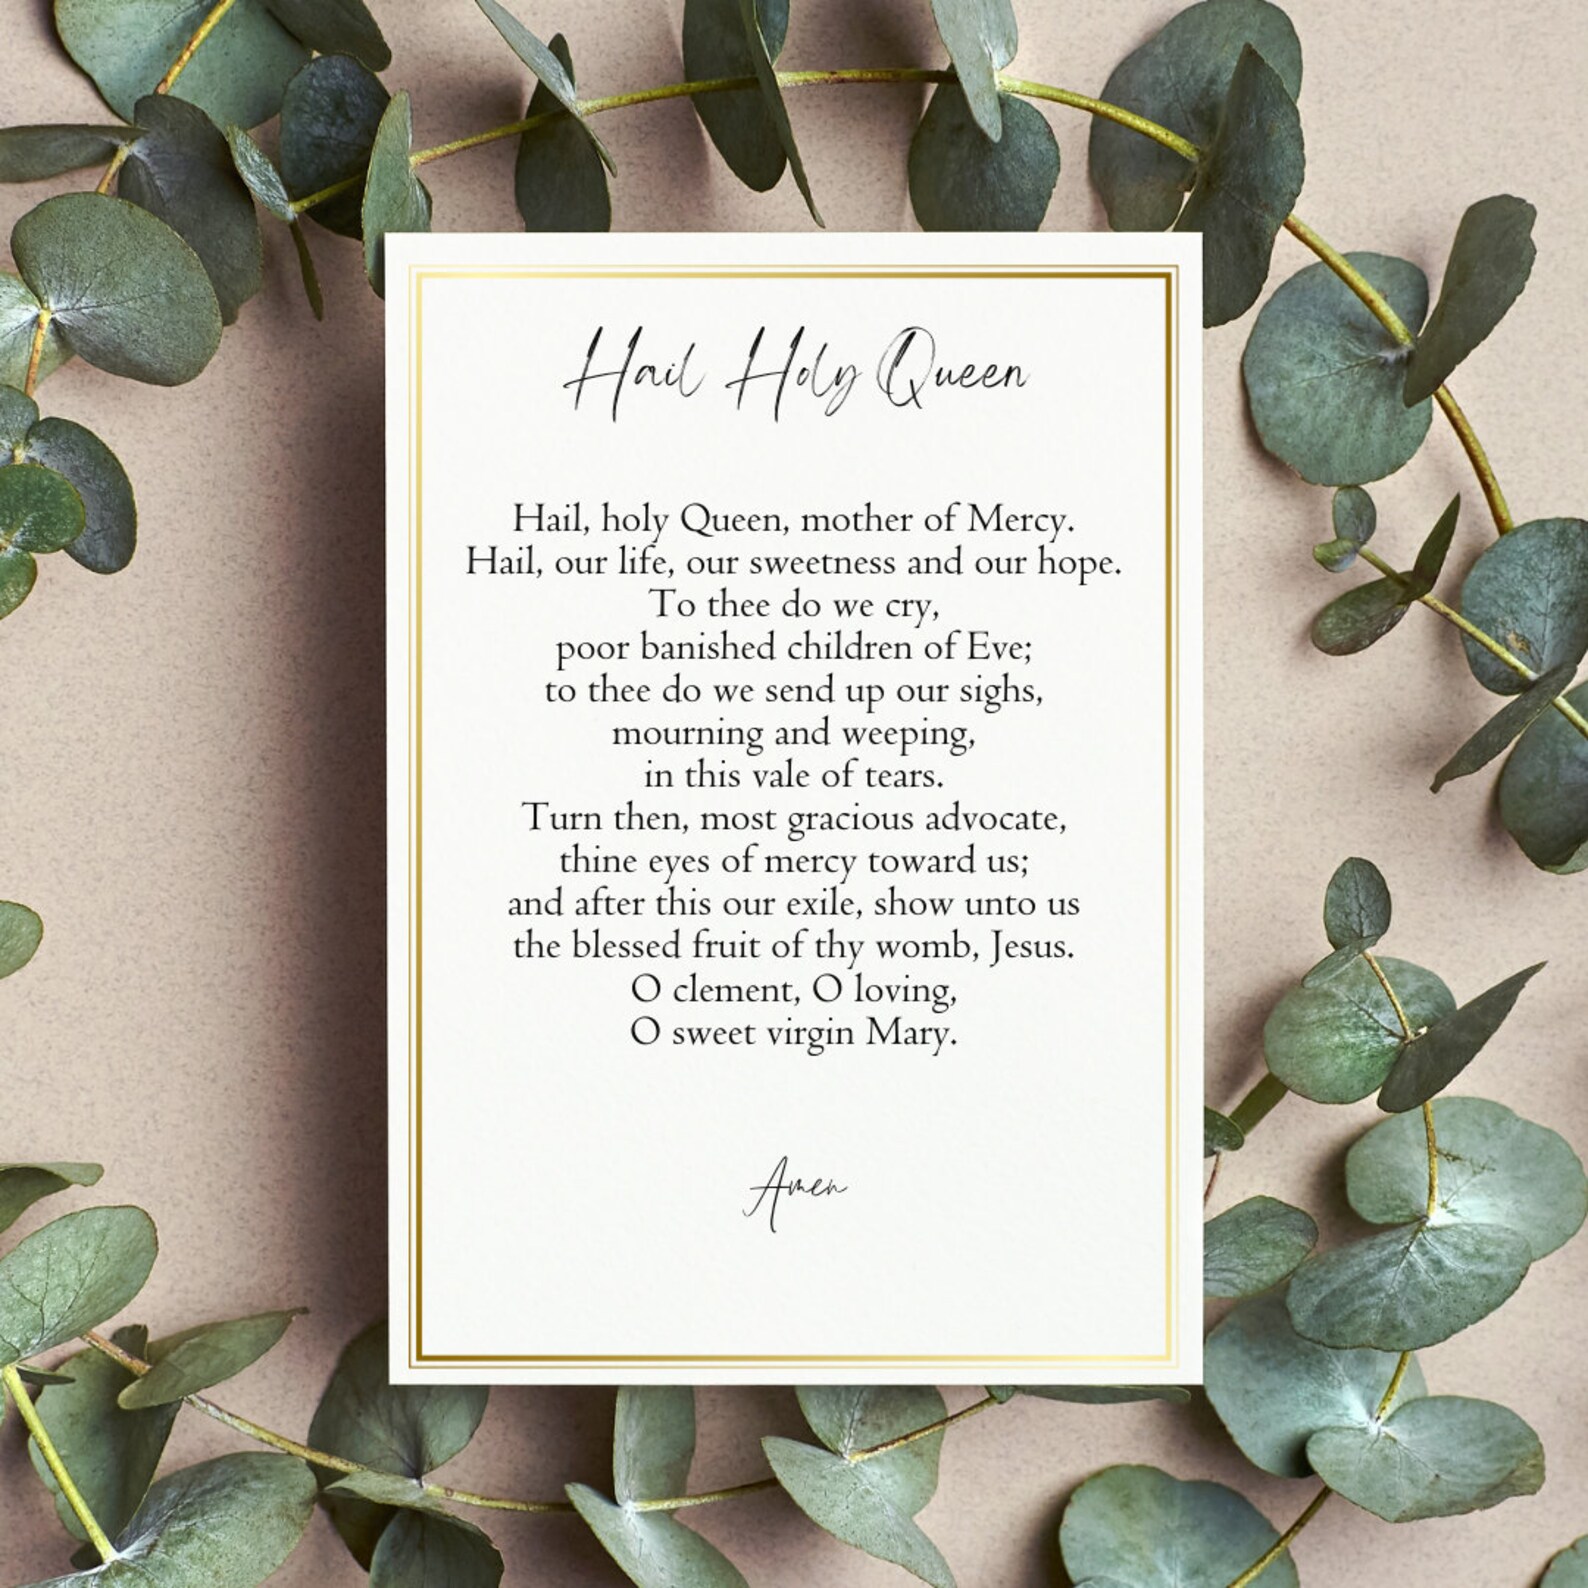 Hail Holy Queen
Hail, holy Queen, mother of Mercy.
Hail, our life, our sweetness and our hope.
To thee do we cry,
poor banished children of Eve;
to thee do we send up our sighs,
mourning and weeping,
in this vale of tears.
Turn then, most gracious advocate,
thine eyes of mercy toward us;
and after this our exile, show unto us
the blessed fruit of thy womb, Jesus.
O clement, O loving,
O sweet virgin Mary.
Amen